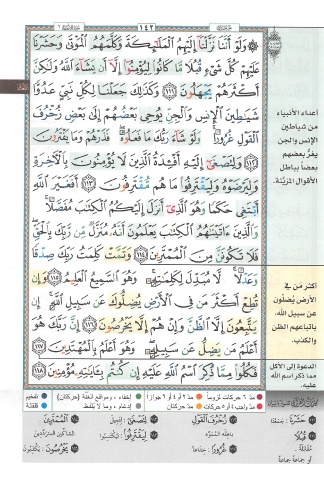 ١٤٢
۞ وَلَوْ أَنَّنَا نَزَّلْنَا إِلَيْهِمُ الْمَلَٰٓئِكَةَ وَكَلَّمَهُمُ الْمَوْتَىٰ وَحَشَرْنَا
عَلَيْهِمْ كُلَّ شَىْءٍ قُبُلًا مَّا كَانُوا لِيُؤْمِنُوٓا إِلَّآ أَن يَشَآءَ اللَّهُ وَلَٰكِنَّ
أَكْثَرَهُمْ يَجْهَلُونَ ١١١ وَكَذَٰلِكَ جَعَلْنَا لِكُلِّ نَبِىٍّ عَدُوًّا
شَيَٰطِينَ الْإِنسِ وَالْجِنِّ يُوحِى بَعْضُهُمْ إِلَىٰ بَعْضٍ زُخْرُفَ
الْقَوْلِ غُرُورًا وَلَوْ شَآءَ رَبُّكَ مَا فَعَلُوهُ فَذَرْهُمْ وَمَا يَفْتَرُونَ
١١٢ وَلِتَصْغَىٰٓ إِلَيْهِ أَفْـِٔدَةُ الَّذِينَ لَا يُؤْمِنُونَ بِالْءَاخِرَةِ
وَلِيَرْضَوْهُ وَلِيَقْتَرِفُوا مَا هُم مُّقْتَرِفُونَ ١١٣ أَفَغَيْرَ اللَّهِ
أَبْتَغِى حَكَمًا وَهُوَ الَّذِىٓ أَنزَلَ إِلَيْكُمُ الْكِتَٰبَ مُفَصَّلًا
وَالَّذِينَ ءَاتَيْنَٰهُمُ الْكِتَٰبَ يَعْلَمُونَ أَنَّهُۥ مُنَزَّلٌ مِّن رَّبِّكَ بِالْحَقِّ
فَلَا تَكُونَنَّ مِنَ الْمُمْتَرِينَ ١١٤ وَتَمَّتْ كَلِمَتُ رَبِّكَ صِدْقًا
وَعَدْلًا لَّا مُبَدِّلَ لِكَلِمَٰتِهِۦ وَهُوَ السَّمِيعُ الْعَلِيمُ ١١٥ وَإِن
تُطِعْ أَكْثَرَ مَن فِى الْأَرْضِ يُضِلُّوكَ عَن سَبِيلِ اللَّهِ إِن
يَتَّبِعُونَ إِلَّا الظَّنَّ وَإِنْ هُمْ إِلَّا يَخْرُصُونَ ١١٦ إِنَّ رَبَّكَ هُوَ
أَعْلَمُ مَن يَضِلُّ عَن سَبِيلِهِۦ وَهُوَ أَعْلَمُ بِالْمُهْتَدِينَ ١١٧
فَكُلُوا مِمَّا ذُكِرَ اسْمُ اللَّهِ عَلَيْهِ إِن كُنتُم بِـَٔايَٰتِهِۦ مُؤْمِنِينَ ١١٨
أعداء الأنبياء
من شياطين
الإنس والجن
يغرّ بعضهم
بعضاً بباطل
الأقوال المزيّنة.
أكثر من في
الأرض يُضلون
عن سبيل الله،
باتباعهم الظن
والكذب.
الدعوة إلى الأكل
مما ذكر اسم الله
عليه
مدّ ٦ حركات لزوماً
مدّ ٢ أو ٤ أو ٦ جوازاً
إخفاء، ومواقع الغنّة (حركتان)
تفخيم
مدّ واجب ٤ أو ٥ حركات
مدّ حركتان
إدغام، وما لا يُلفظ
قلقلة
حَشَرْنَا: جمعنا
زُخْرُفَ الْقَوْلِ
لِتَصْغَىٰ: لتميل
الْمُمْتَرِينَ
قُبُلًا
غُرُورًا: خداعاً
لِيَقْتَرِفُوا: ليكتسبوا
يَخْرُصُونَ: يكذبون